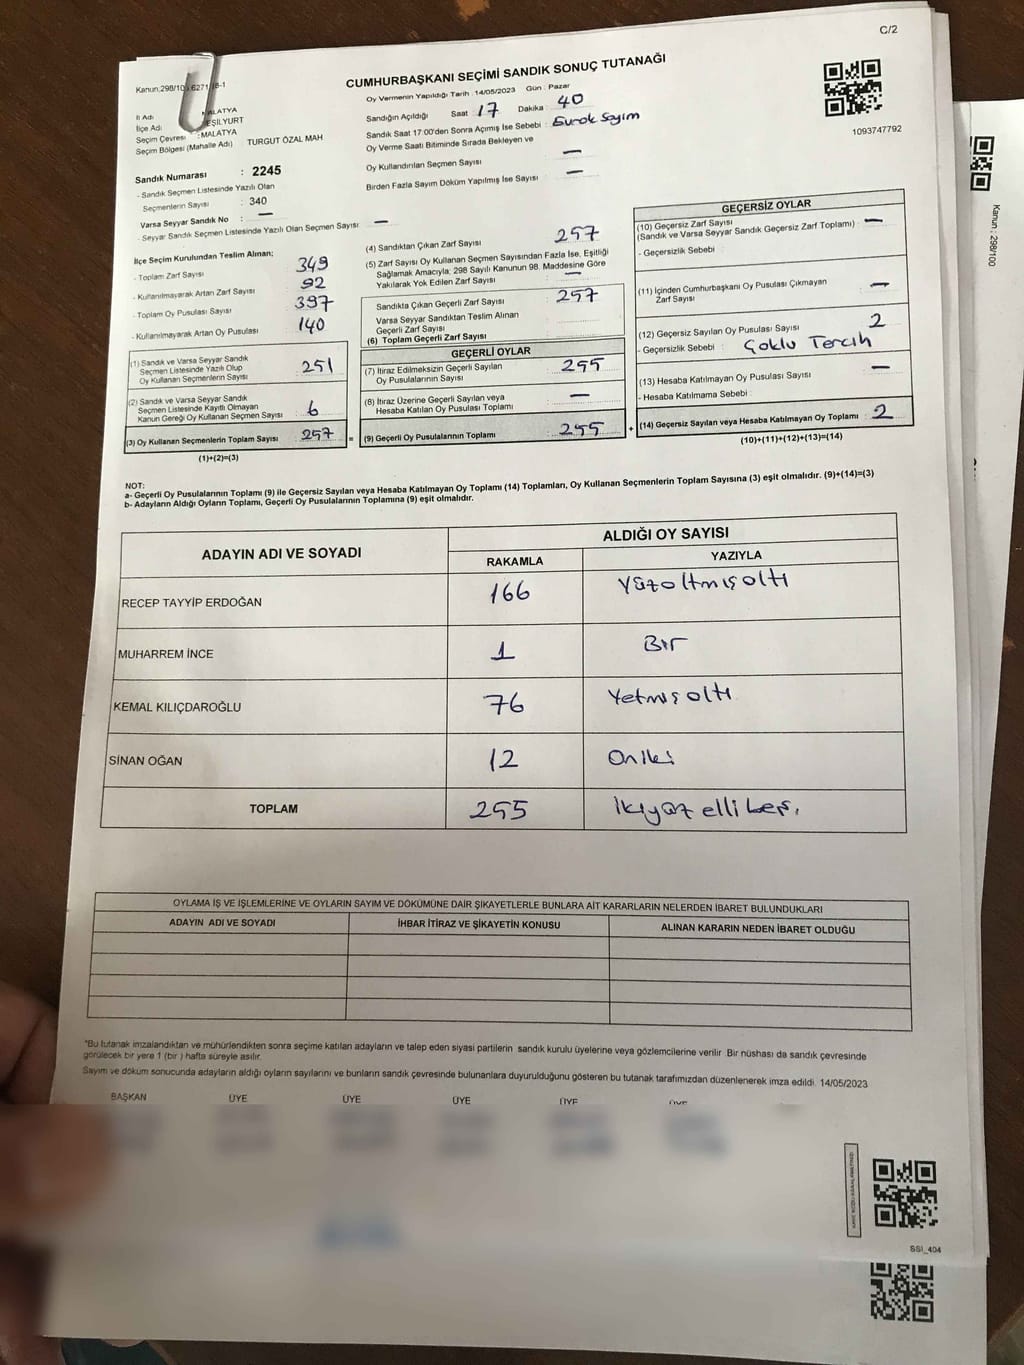 C/2
CUMHURBAŞKANI SEÇİMİ SANDIK SONUÇ TUTANAĞI
Oy Vermenin Yapıldığı Tarih : 14/05/2023 Gün : Pazar
Sandığın Açıldığı Saat 17 Dakika : 40
Sandık Saat 17:00'den Sonra Açımış İse Sebebi :
Oy Verme Saati Bitiminde Sırada Bekleyen ve
Oy Kullandırılan Seçmen Sayısı —
Birden Fazla Sayım Döküm Yapılmış İse Sayısı : —
1093747792
İl Adı
İlçe Adı
Seçim Çevresi : MALATYA
Seçim Bölgesi (Mahalle Adı) TURGUT ÖZAL MAH
Sandık Numarası : 2245
- Sandık Seçmen Listesinde Yazılı Olan
Seçmenlerin Sayısı : 340
Varsa Seyyar Sandık No : —
- Seyyar Sandık Seçmen Listesinde Yazılı Olan Seçmen Sayısı —
İlçe Seçim Kurulundan Teslim Alınan;
- Toplam Zarf Sayısı 349
- Kullanılmayarak Artan Zarf Sayısı : 92
- Toplam Oy Pusulası Sayısı : 397
- Kullanılmayarak Artan Oy Pusulası 140
(1) Sandık ve Varsa Seyyar Sandık
Seçmen Listesinde Yazılı Olup
Oy Kullanan Seçmenlerin Sayısı : 251
(2) Sandık ve Varsa Seyyar Sandık
Seçmen Listesinde Kayıtlı Olmayan
Kanun Gereği Oy Kullanan Seçmen Sayısı : 6
(3) Oy Kullanan Seçmenlerin Toplam Sayısı : 257
(1)+(2)=(3)
(4) Sandıktan Çıkan Zarf Sayısı 257
(5) Zarf Sayısı Oy Kullanan Seçmen Sayısından Fazla İse, Eşitliği
Sağlamak Amacıyla; 298 Sayılı Kanunun 98. Maddesine Göre
Yakılarak Yok Edilen Zarf Sayısı : —
Sandıkta Çıkan Geçerli Zarf Sayısı : 257
Varsa Seyyar Sandıktan Teslim Alınan
Geçerli Zarf Sayısı
(6) Toplam Geçerli Zarf Sayısı
GEÇERLİ OYLAR
(7) İtiraz Edilmeksizin Geçerli Sayılan
Oy Pusulalarının Sayısı : 255
(8) İtiraz Üzerine Geçerli Sayılan veya
Hesaba Katılan Oy Pusulası Toplamı : —
= (9) Geçerli Oy Pusulalarının Toplamı : 255
GEÇERSİZ OYLAR
(10) Geçersiz Zarf Sayısı
(Sandık ve Varsa Seyyar Sandık Geçersiz Zarf Toplamı) : —
- Geçersizlik Sebebi :
(11) İçinden Cumhurbaşkanı Oy Pusulası Çıkmayan
Zarf Sayısı —
(12) Geçersiz Sayılan Oy Pusulası Sayısı : 2
- Geçersizlik Sebebi : Çoklu Tercih
(13) Hesaba Katılmayan Oy Pusulası Sayısı : —
- Hesaba Katılmama Sebebi :
+ (14) Geçersiz Sayılan veya Hesaba Katılmayan Oy Toplamı : 2
(10)+(11)+(12)+(13)=(14)
NOT:
a- Geçerli Oy Pusulalarının Toplamı (9) ile Geçersiz Sayılan veya Hesaba Katılmayan Oy Toplamı (14) Toplamları, Oy Kullanan Seçmenlerin Toplam Sayısına (3) eşit olmalıdır. (9)+(14)=(3)
b- Adayların Aldığı Oyların Toplamı, Geçerli Oy Pusulalarının Toplamına (9) eşit olmalıdır.
ADAYIN ADI VE SOYADI ALDIĞI OY SAYISI
RAKAMLA YAZIYLA
RECEP TAYYİP ERDOĞAN 166 Yüzaltmışaltı
MUHARREM İNCE 1 Bir
KEMAL KILIÇDAROĞLU 76 Yetmişaltı
SİNAN OĞAN 12 Oniki
TOPLAM 255 İkiyüzellibeş.
OYLAMA İŞ VE İŞLEMLERİNE VE OYLARIN SAYIM VE DÖKÜMÜNE DAİR ŞİKAYETLERLE BUNLARA AİT KARARLARIN NELERDEN İBARET BULUNDUKLARI
ADAYIN ADI VE SOYADI İHBAR İTİRAZ VE ŞİKAYETİN KONUSU ALINAN KARARIN NEDEN İBARET OLDUĞU
*Bu tutanak imzalandıktan ve mühürlendikten sonra seçime katılan adayların ve talep eden siyasi partilerin sandık kurulu üyelerine veya gözlemcilerine verilir. Bir nüshası da sandık çevresinde
görülecek bir yere 1 (bir ) hafta süreyle asılır.
Sayım ve döküm sonucunda adayların aldığı oyların sayılarını ve bunların sandık çevresinde bulunanlara duyurulduğunu gösteren bu tutanak tarafımızdan düzenlenerek imza edildi. 14/05/2023
BAŞKAN ÜYE ÜYE ÜYE ÜYE
SSI_404
Kanun : 298/100